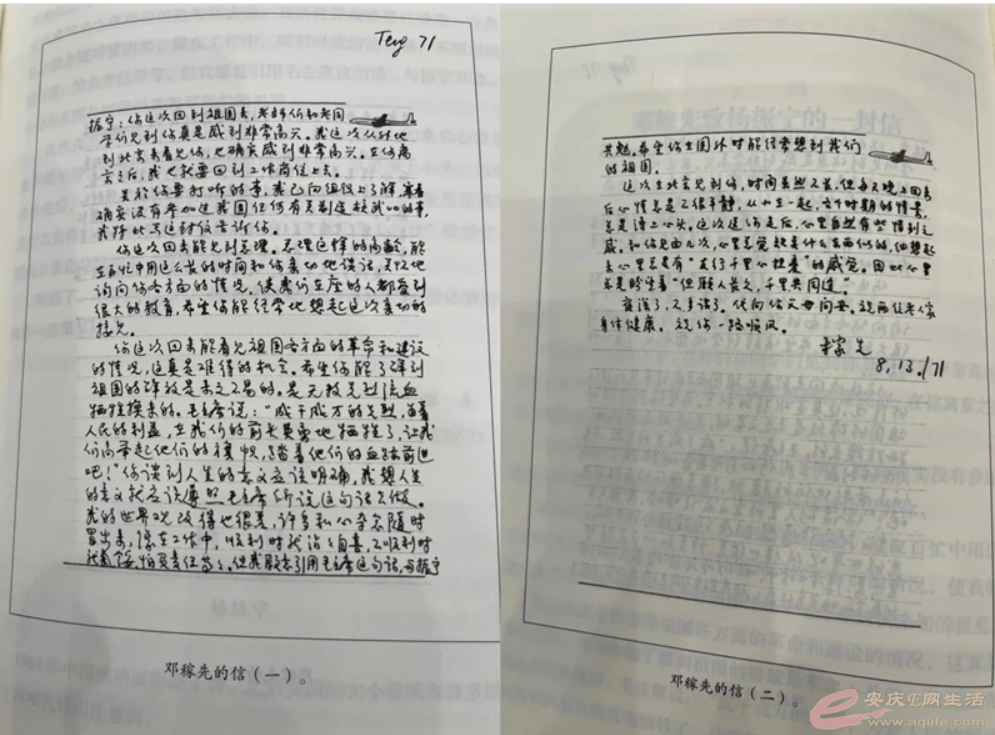 Teng 71
振宁：你这次回到祖国来，老师们和老同
学们见到你真是感到非常高兴。我这次从外地
到北京来看见你，也确实感到非常高兴。在你离
京之后，我也就要回到工作岗位上去。
关于你要打听的事，我已向组织上了解，寒春
确实没有参加过我国任何有关制造核武器的事，
我特此写这封信告诉你。
你这次回来能见到总理。总理这样的高龄，能
在百忙中用这么长的时间和你亲切地谈话，关怀地
询问你各方面的情况，使我们在座的人都受到
很大的教育，希望你能经常地想起这次亲切的
接见。
你这次回来能看见祖国各方面的革命和建设
的情况，这真是难得的机会。希望你能了解到
祖国的解放是来之不易的。是无数先烈流血
牺牲换来的。毛主席说："成千成万的先烈，为着
人民的利益，在我们的前头英勇地牺牲了，让我
们高举起他们的旗帜，踏着他们的血迹前进
吧！"你谈到人生的意义应该明确，我想人生
的意义就应该遵照毛主席所说这句话去做。
我的世界观改得也很差，许多私心杂念随时
冒出来，像在工作中，顺利时就沾沾自喜，不顺利时
就气馁，怕负责任等等。但我愿意引用毛主席这句话，与振宁
邓稼先的信（一）。
共勉。希望你在国外时能经常想到我们
的祖国。
这次在北京见到你，时间虽然不长，但每天晚上回来
后心情总是不很平静，从小在一起，各个时期的情景，
总是涌上心头。这次送你走后，心里自然有些惜别之
感。和你见面几次，心里总觉缺点什么东西似的，细想起
来心里总是有"友行千里心担忧"的感觉。因此心里
总是盼望着"但愿人长久，千里共同途"。
夜深了，不多谈了。代向你父母问安。祝两位老人家
身体健康。祝你一路顺风。
稼先
8.13./71
邓稼先的信（二）。
安庆E网生活
www.aqlife.com